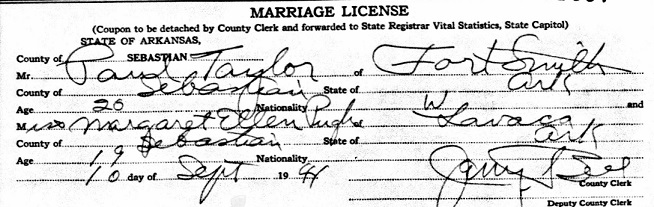 MARRIAGE LICENSE
(Coupon to be detached by County Clerk and forwarded to State Registrar Vital Statistics, State Capitol)
STATE OF ARKANSAS,
County of SEBASTIAN
Mr. Paul Taylor of Fort Smith
County of Sebastian State of Ark
Age 20 Nationality W and
Miss Margaret Ellen Pugh of Lavaca
County of Sebastian State of Ark
Age 19 Nationality
10 day of Sept 19
County Clerk
Deputy County Clerk